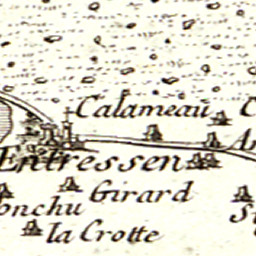 Calameau
Entressen
Girard
la Crotte